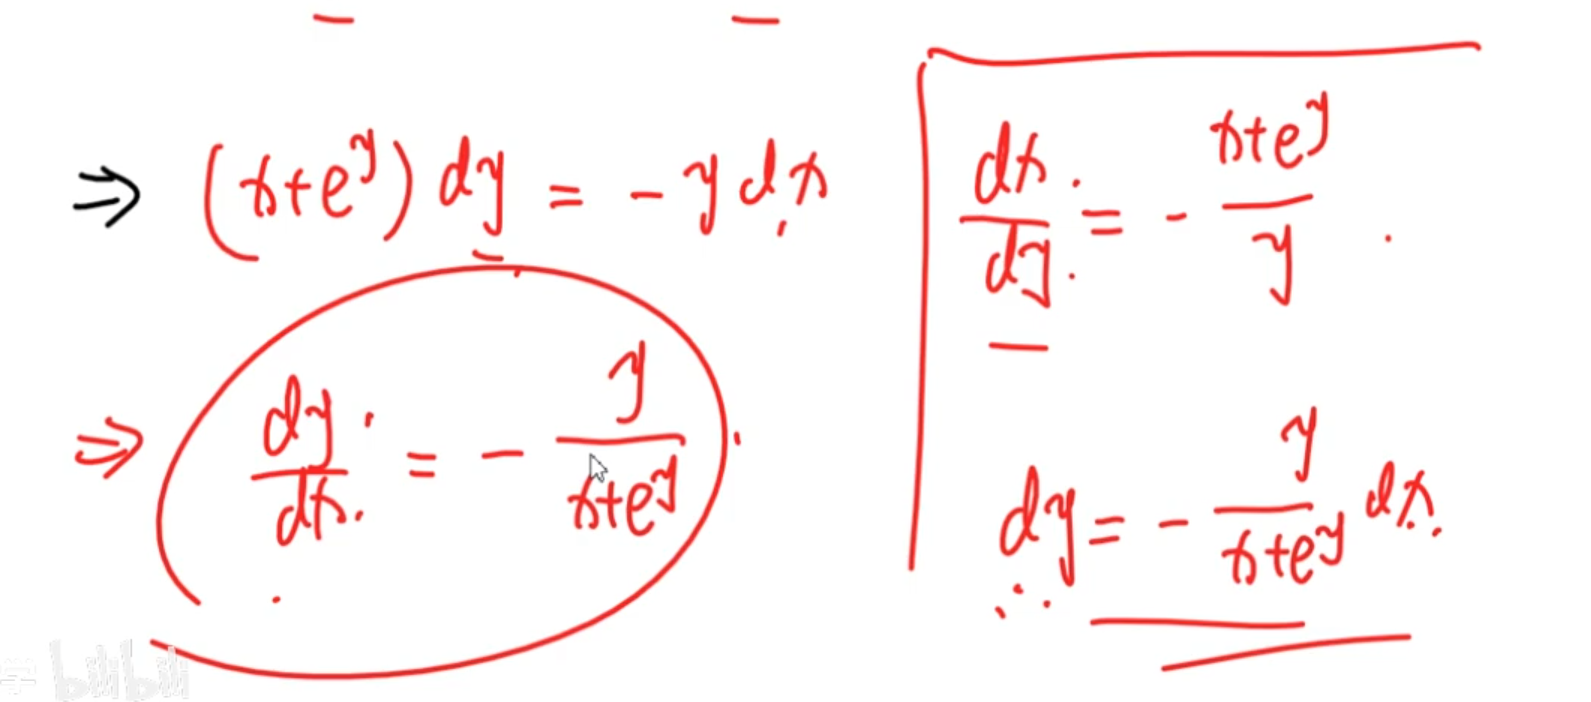 ⇒ (x+e^y) dy = - y dx
⇒ dy/dx = - y/(x+e^y)
dx/dy = - (x+e^y)/y
dy = - y/(x+e^y) dx
学 bilibili